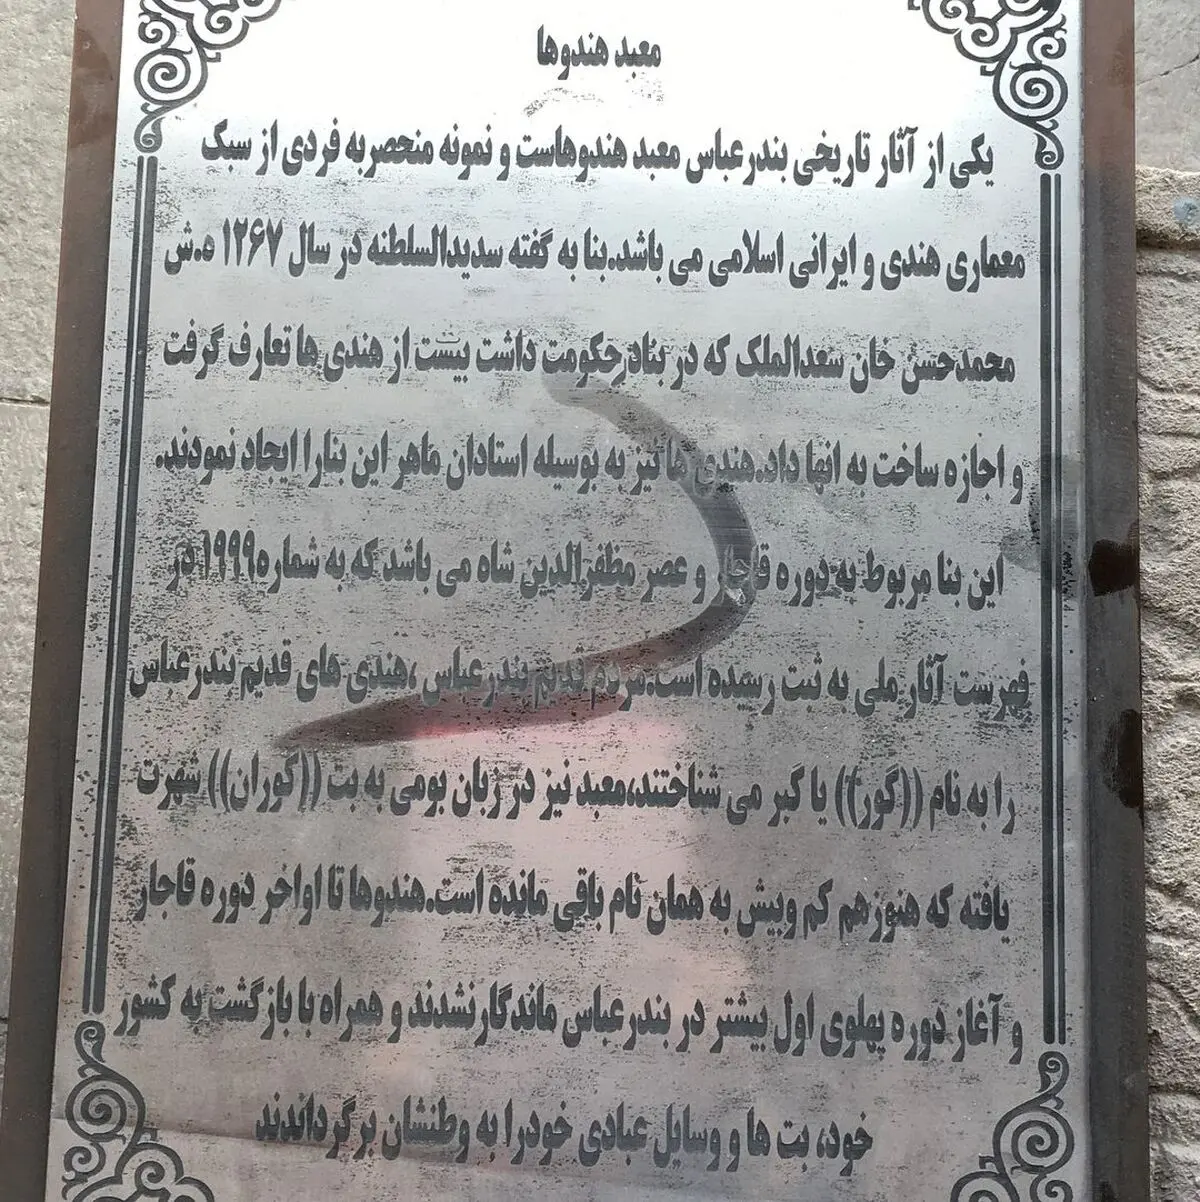 معبد هندوها
یکی از آثار تاریخی بندرعباس معبد هندوهاست و نمونه منحصربه فردی از سبک
معماری هندی و ایرانی اسلامی می باشد.بنا به گفته سدیدالسلطنه در سال ۱۲۶۷ ه.ش
محمدحسن خان سعدالملک که در بنادرحکومت داشت بیست از هندی ها تعارف گرفت
و اجازه ساخت به انها داد.هندی ها نیز به بوسیله استادان ماهر این بنارا ایجاد نمودند.
این بنا مربوط به دوره قاجار و عصر مظفرالدین شاه می باشد که به شماره۱۹۹۹ در
فهرست آثار ملی به ثبت رسیده است.مردم قدیم بندرعباس ،هندی های قدیم بندرعباس
را به نام ((گور)) یا گبر می شناختند،معبد نیز در زبان بومی به بت ((گوران)) شهرت
یافته که هنوزهم کم وبیش به همان نام باقی مانده است.هندوها تا اواخر دوره قاجار
و آغاز دوره پهلوی اول بیشتر در بندرعباس ماندگارنشدند و همراه با بازگشت به کشور
خود، بت ها و وسایل عبادی خودرا به وطنشان برگرداندند